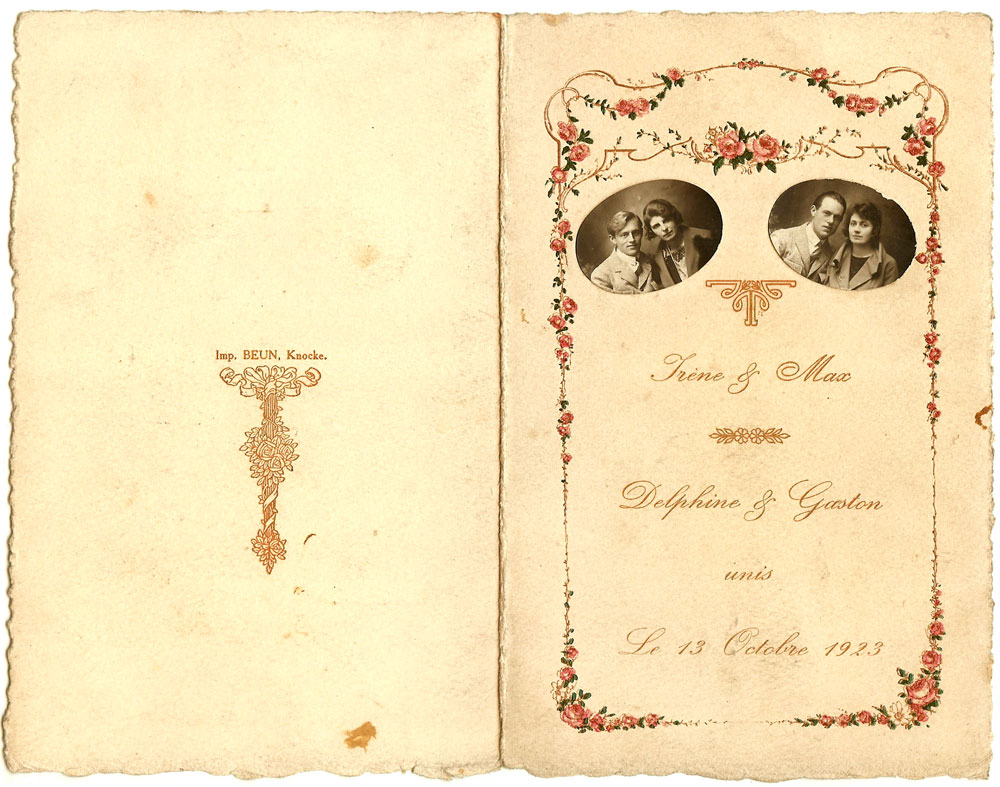 Imp. BEUN, Knocke.
Irène & Max
Delphine & Gaston
unis
Le 13 Octobre 1923